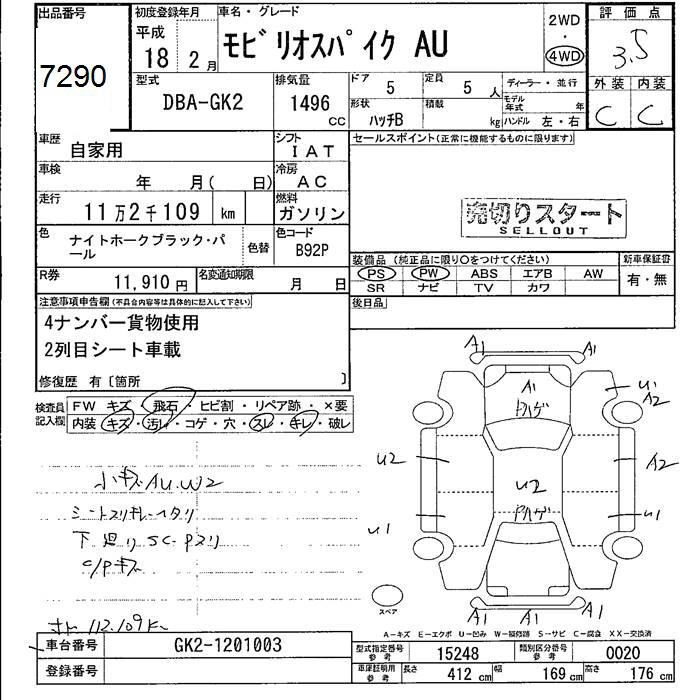 出品番号
7290
初度登録年月
平成
18 2 月
車名・グレード
モビリオスパイク AU
2WD
・
4WD
評価点
3.5
外装 内装
C C
型式
DBA-GK2
排気量
1496
CC
ドア
5
定員
5 人
ディーラー・並行
形状
ハッチB
積載
kg
モデル年式 年
ハンドル 左・右
車歴
自家用
シフト
IAT
セールスポイント(正常に機能するものに限ります)
車検
年 月( 日)
冷房
AC
走行
11万2千109 km
燃料
ガソリン
売切りスタート
SELLOUT
色
ナイトホークブラック・パール
色替
色コード
B92P
装備品 (純正品に限り○をつけてください)
新車保証書
PS PW ABS エアB AW
SR ナビ TV カワ
有・無
R券
11,910 円
名変通知期限
月 日
後日品
注意事項申告欄(不具合内容等は具体的に記入して下さい)
4ナンバー貨物使用
2列目シート車載
修復歴 有〔箇所 〕
検査員記入欄
FW キズ・飛石・ヒビ割・リペア跡・×要
内装 キズ・汚レ・コゲ・穴・スレ・キレ・破レ
小キズAU.W2
下廻りSC・Pスリ
C/Pキズ
112.109K
A1 A1
A1
U1
A2
U2
U2
A2
U1
U1
A1 A1 A1
スペア
A-キズ E-エクボ U-凹み W-補修跡 S-サビ C-腐食 XX-交換済
車台番号
GK2-1201003
登録番号
型式指定番号
参考
15248
類別区分番号
参考
0020
車庫証明用
参考
長さ
412 cm
幅
169 cm
高さ
176 cm